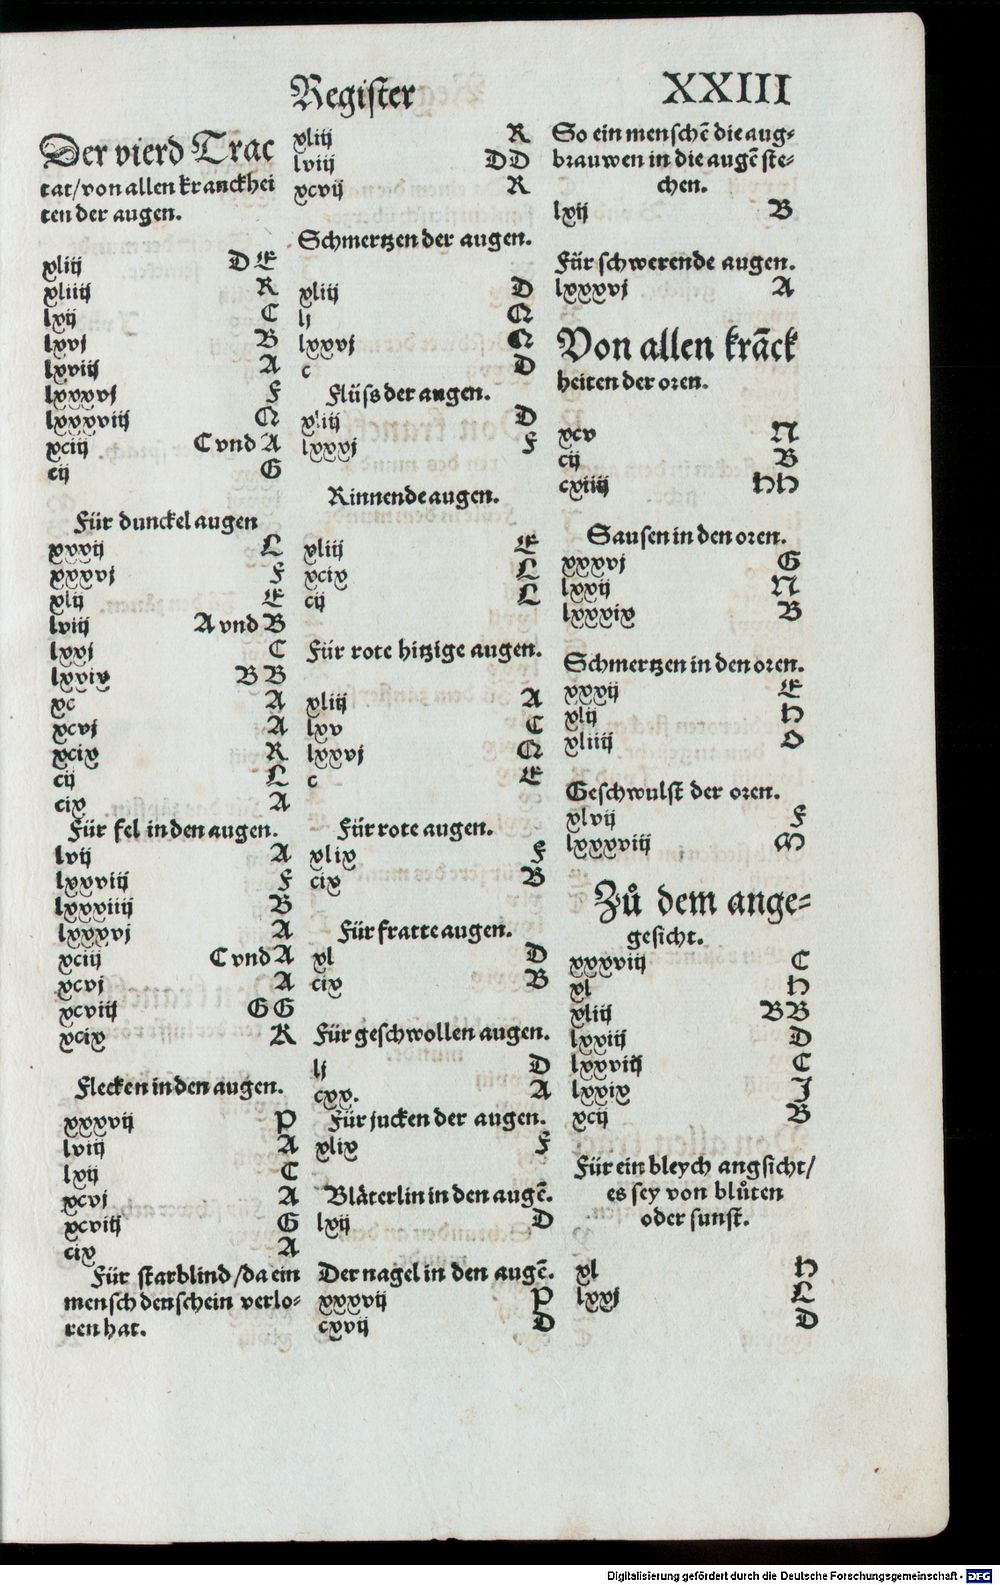 Register
XXIII
Der vierd Trac
tat/von allen kranckhei
ten der augen.
xliij D E
xliiij R
lxij C
lxvj B
lxviij A
lxxxvj F
lxxxviij Q
xciij C vnd A
cij G
Für dunckel augen
xxxij L
xxxvj F
xlij E
lviij A vnd B
lxxj C
lxxix B B
xc A
xcvj A
xcix R
cij L
cix A
Für fel in den augen.
lvij A
lxxviij F
lxxxiiij B
lxxxvj A
xciij C vnd A
xcvj A
xcviij G G
xcix K
Flecken in den augen.
xxxvij P
lviij A
lxij C
xcvj A
xcviij G
cix A
Für starblind/da ein
mensch den schein verlo⸗
ren hat.
xliij R
lviij D D
xcvij R
Schmertzen der augen.
xliij D
lj Q
lxxvj Q
c D
Flüss der augen.
xliij D
lxxxj F
Rinnende augen.
xliij E
xcix L
cij L
Für rote hitzige augen.
xliij A
lxv C
lxxvj Q
c E
Für rote augen.
xlix F
cix B
Für fratte augen.
xl D
cix B
Für geschwollen augen.
lj D
cxx. A
Für jucken der augen.
xlix F
Blåterlin in den augē.
lxij D
Der nagel in den augē.
xxxvij P
cxvij D
So ein menschē die aug⸗
brauwen in die augē ste⸗
chen.
lxij B
Für schwerende augen.
lxxxvj A
Von allen krāck
heiten der oren.
xcv N
cij B
cxiiij H H
Sausen in den oren.
xxxvj G
lxxij N
lxxxix B
Schmertzen in den oren.
xxxij E
xlij H
xliiij O
Geschwulst der oren.
xlvij F
lxxxviij M
Zů dem ange⸗
gesicht.
xxxviij C
xl H
xliij B B
lxxiij D
lxxviij C
lxxix J
xcij B
Für ein bleych angsicht/
es sey von blůten
oder sunst.
xl H
lxxj L
D
Digitalisierung gefördert durch die Deutsche Forschungsgemeinschaft - DFG